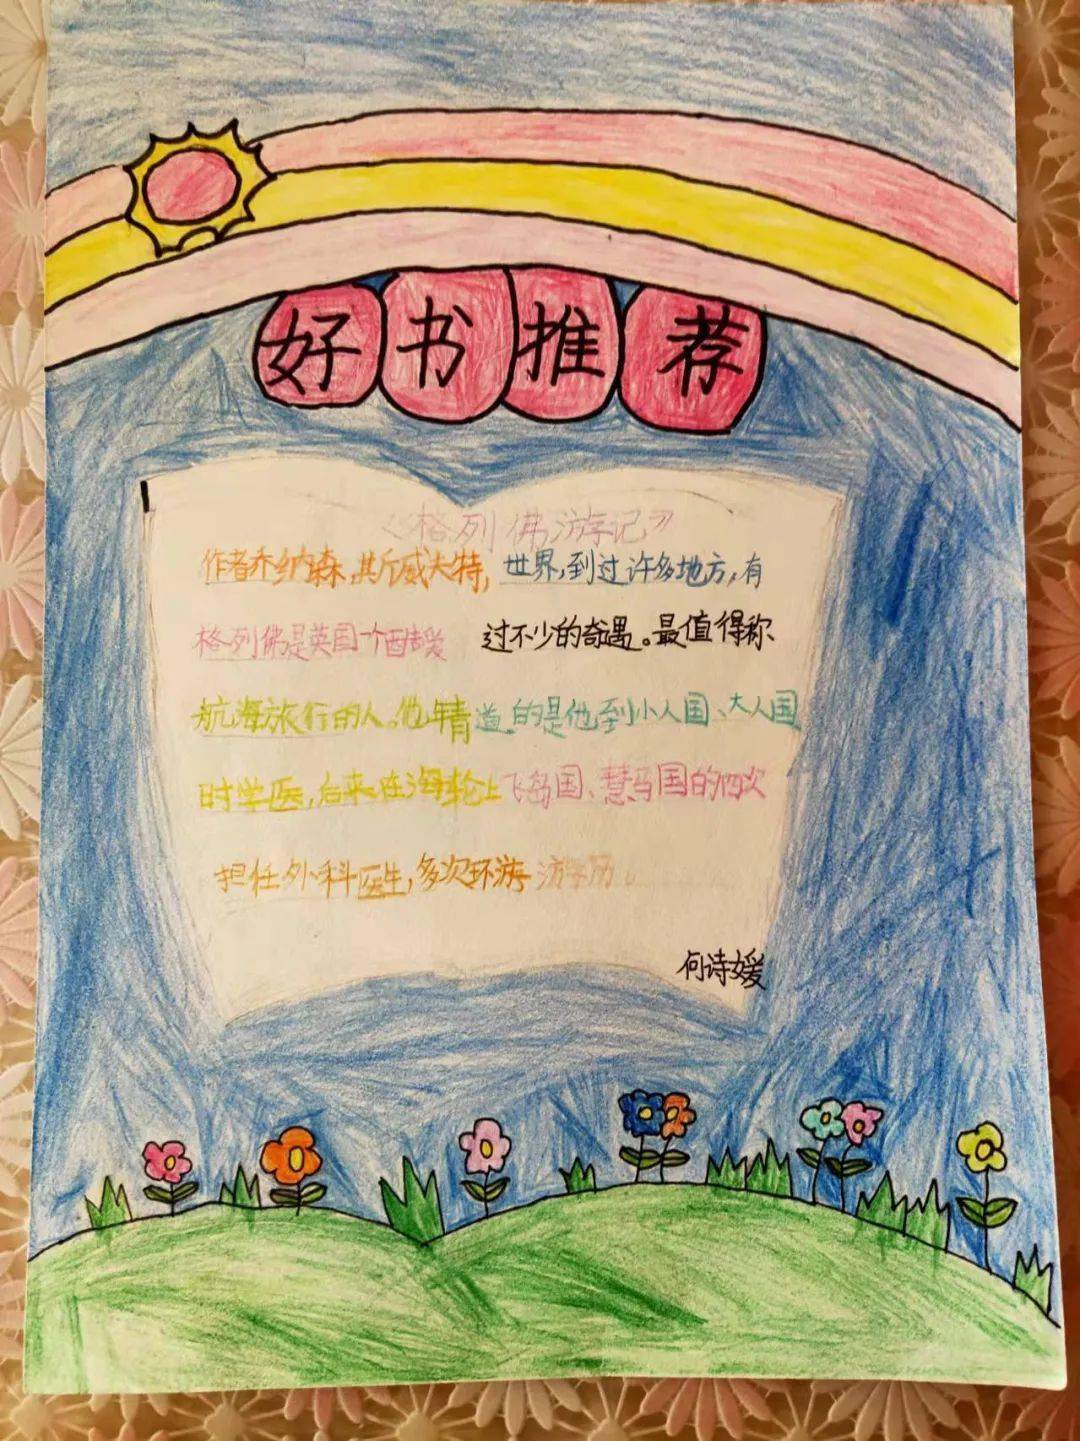 好书推荐
《格列佛游记》
作者乔纳森,斯威夫特,
格列佛是英国一个酷爱
航海旅行的人。他年青
时学医,后来在海轮上
担任外科医生,多次环游
世界,到过许多地方,有
过不少的奇遇。最值得称
道的是他到小人国、大人国
飞岛国、慧马国的四次
游学历。
何诗媛